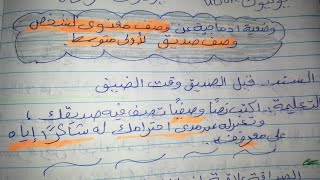 وضعية ادماجية عن: وصف معنوي لشخص
وصف صديق للأولى متوسط
السند: قيل الصديق وقت الضيق
التعليمة: اكتب نصًا وصفيًا تصف فيه صديقك،
وتعبر له عن مدى احترامك له شاكرًا إياه
على معروفه.